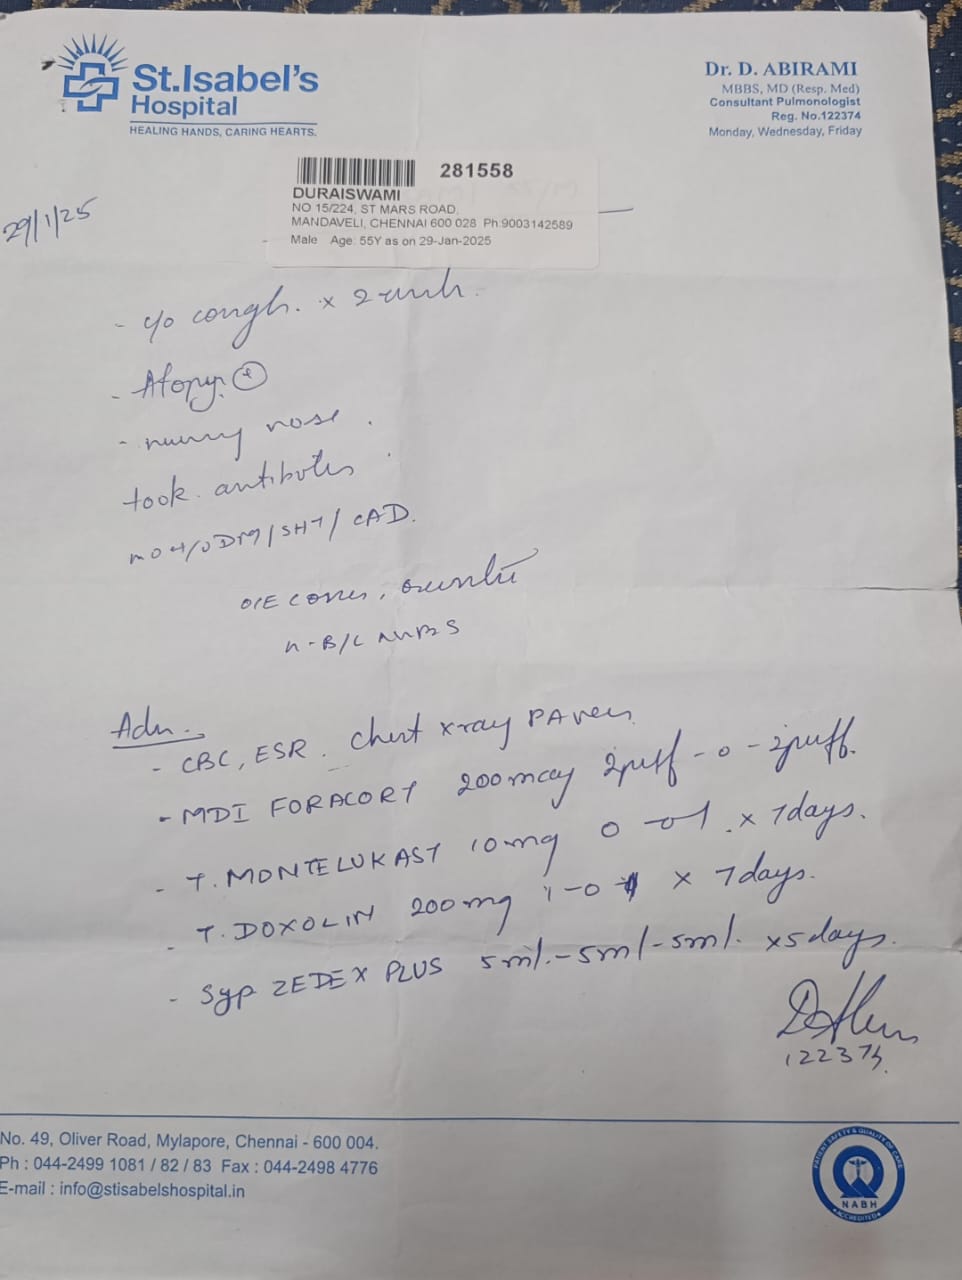 St.Isabel's
Hospital
HEALING HANDS, CARING HEARTS.
Dr. D. ABIRAMI
MBBS, MD (Resp. Med)
Consultant Pulmonologist
Reg. No.122374
Monday, Wednesday, Friday
281558
DURAISWAMI
NO 15/224, ST MARS ROAD,
MANDAVELI, CHENNAI 600 028 Ph:9003142589
Male Age: 55Y as on 29-Jan-2025
29/1/25
- c/o cough. x 2
- Atopy. +
- runny nose.
took antibiotics.
no H/O DM/SHT/CAD.
O/E
Adv.
- CBC, ESR. Chest x-ray PA view
- MDI FORACORT 200mcg 2puff-0-2puff.
- T. MONTELUKAST 10mg 0-0-1 x 7days.
- T. DOXOLIN 200mg 1-0 x 7days.
- Syp ZEDEX PLUS 5ml-5ml-5ml. x5days.
122374
No. 49, Oliver Road, Mylapore, Chennai - 600 004.
Ph : 044-2499 1081 / 82 / 83 Fax : 044-2498 4776
E-mail : info@stisabelshospital.in
PATIENT SAFETY & QUALITY OF CARE
NABH
ACCREDITED